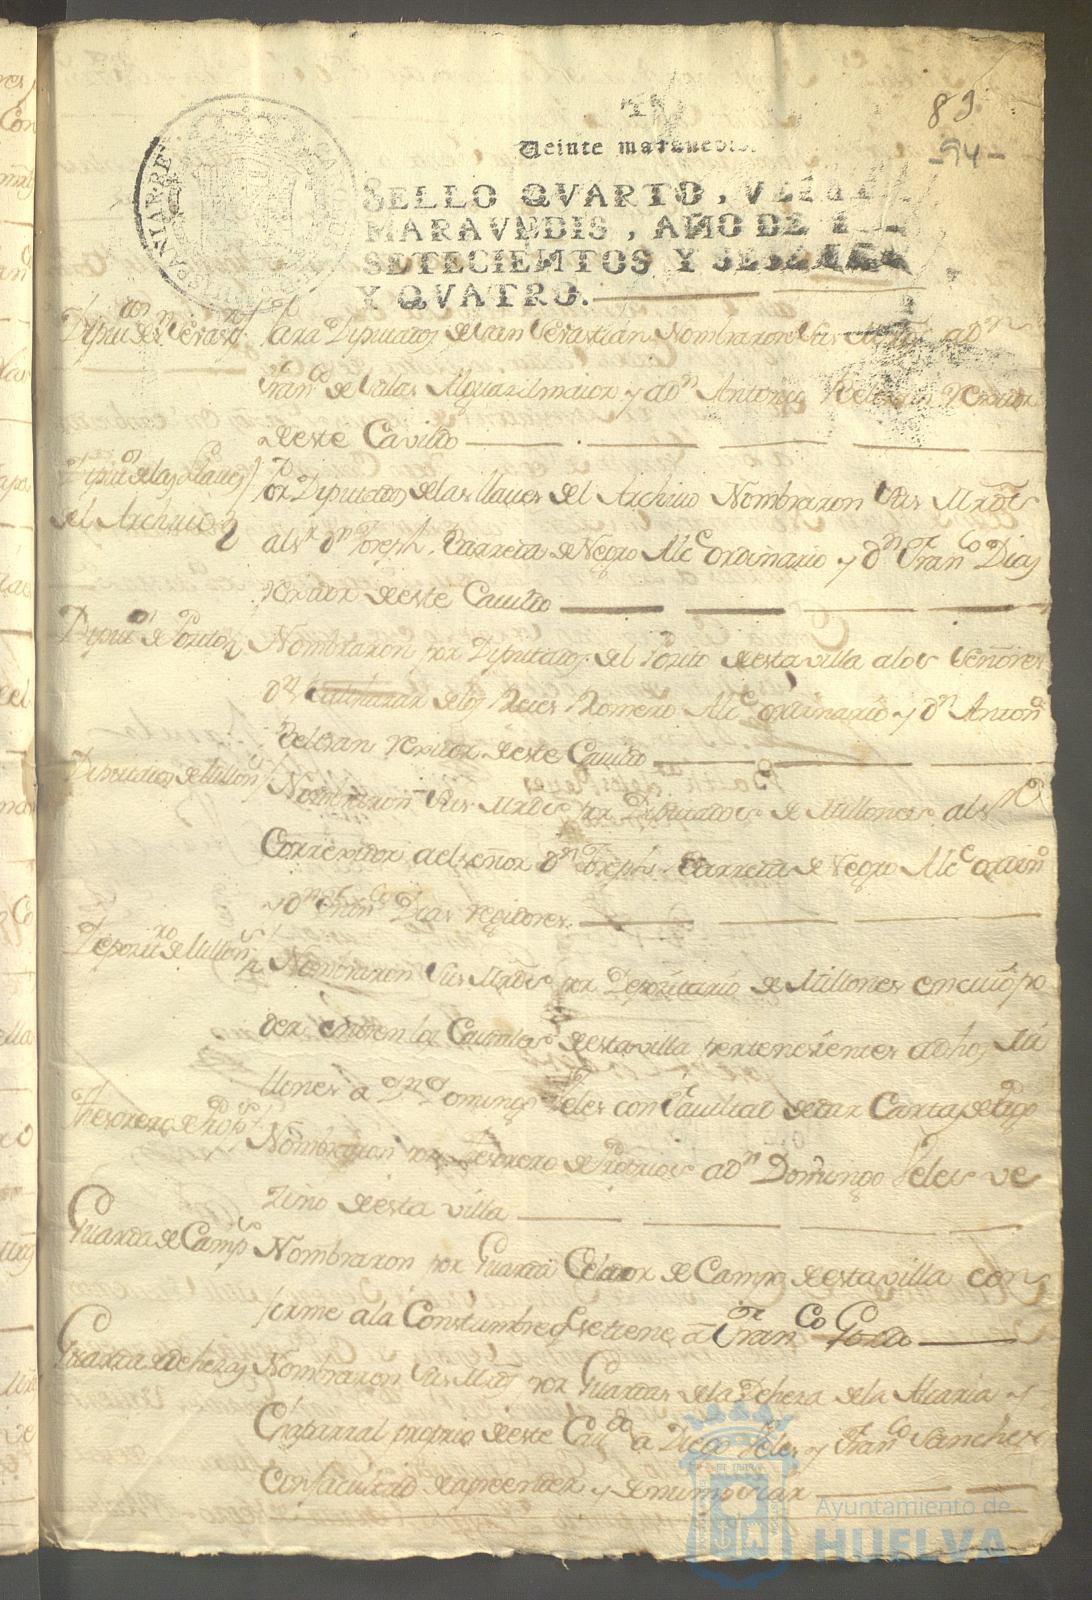 83
-94-
Veinte maravedis.
SELLO QVARTO, VEINTE
MARAVEDIS, AÑO DE
SETECIENTOS Y SESENTA
Y QVATRO.
Para Diputados de San Sevastian Nombraron sus Mrds a Dn
Franco de Alguazil maior y a Dn Antonio Beltran Rexidor
deeste Cavildo
Diputos de las llaves
del Archivo
Por Diputados de las llaves del Archivo Nombraron sus Mrdes
al Sr Dn Joseph Barreda de Negro Alce ordinario y Dn Franco Dias
rexidor deeste Cavildo
Diputs de Posito
Nombraron por Diputados del Posito deesta villa a los Señores
Dn Balthazar de los Reies Romero Alce ordinario y Dn Anton
Beltran rexidor deeste Cavildo
Diputados de Millons
Nombraron sus Mrdes por Diputados de Millones al Sr
Corregidor a el señor Dn Joseph Barreda de Negro Alce ordino
y Dn Franco Dias regidores.
Deposito de Millons
Nombraron sus Mrds por Depositario de Millones en cuio po
der entren los Caudales deesta villa pertenesientes a dhos Mi
llones a Dn Domingo Feles con facultad de dar Carta de Pago
Thesorero de Props
Nombraron por Thesorero de Propios a Dn Domingo Feles ve
zino deesta villa
Guarda de Campo
Nombraron por Guarda Celador de Campo deesta villa con
forme a la Constumbre q se tiene a Franco
Guarda dehesas
Nombraron sus Mrds por Guardas de la Dehesa de la Alcaria y
Chaparral proprio deeste Cavdo a Diego Feles y Franco Sanches
Con facultad de aprender y denumpsiar
Ayuntamiento de
HUELVA